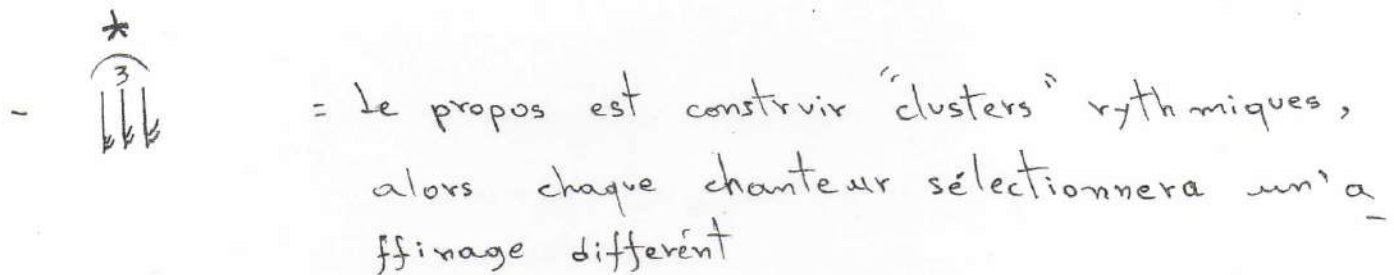 *
3
- = Le propos est construir "clusters" rythmiques,
alors chaque chanteur sélectionnera un'a
ffinage differént